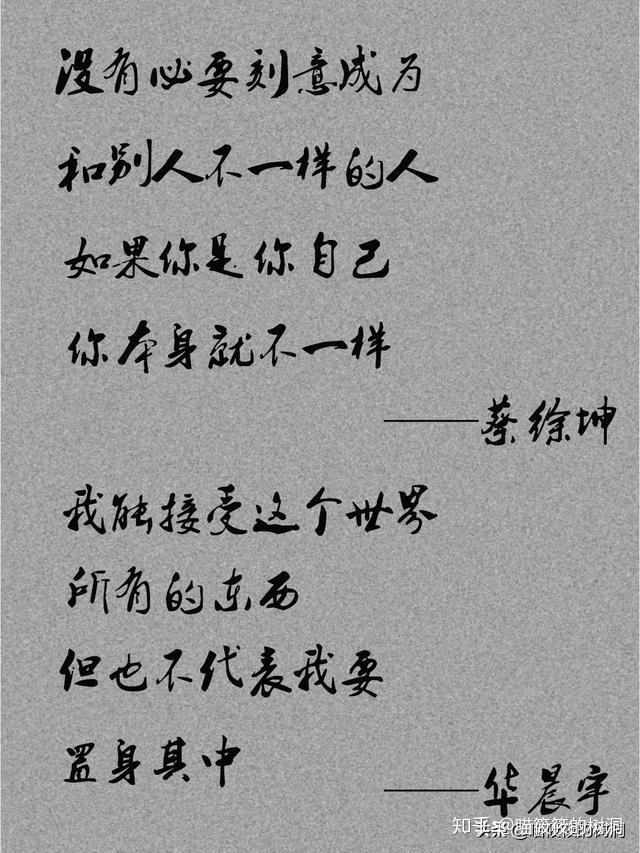 没有必要刻意成为
和别人不一样的人
如果你是你自己
你本身就不一样
——蔡徐坤
我能接受这个世界
所有的东西
但也不代表我要
置身其中
——华晨宇
知乎 @喵筱筱的树洞
头条 @喵筱筱的树洞